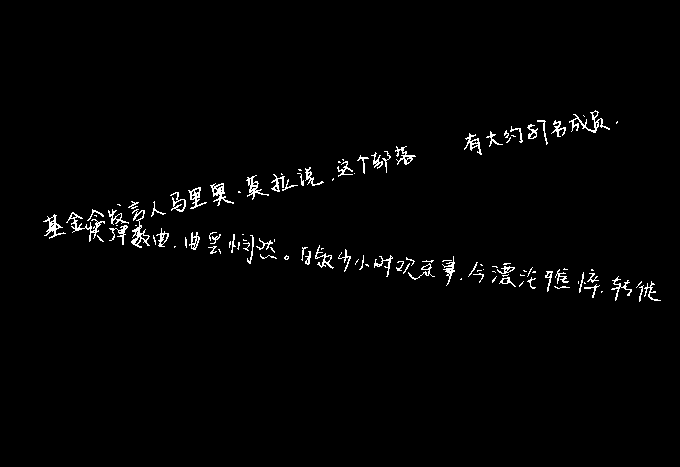 基金会发言人马里奥·莫拉说，这个部落 有大约87名成员．
快弹数曲，曲罢悯然。自叙少小时欢乐事，今漂沦憔悴，转徙